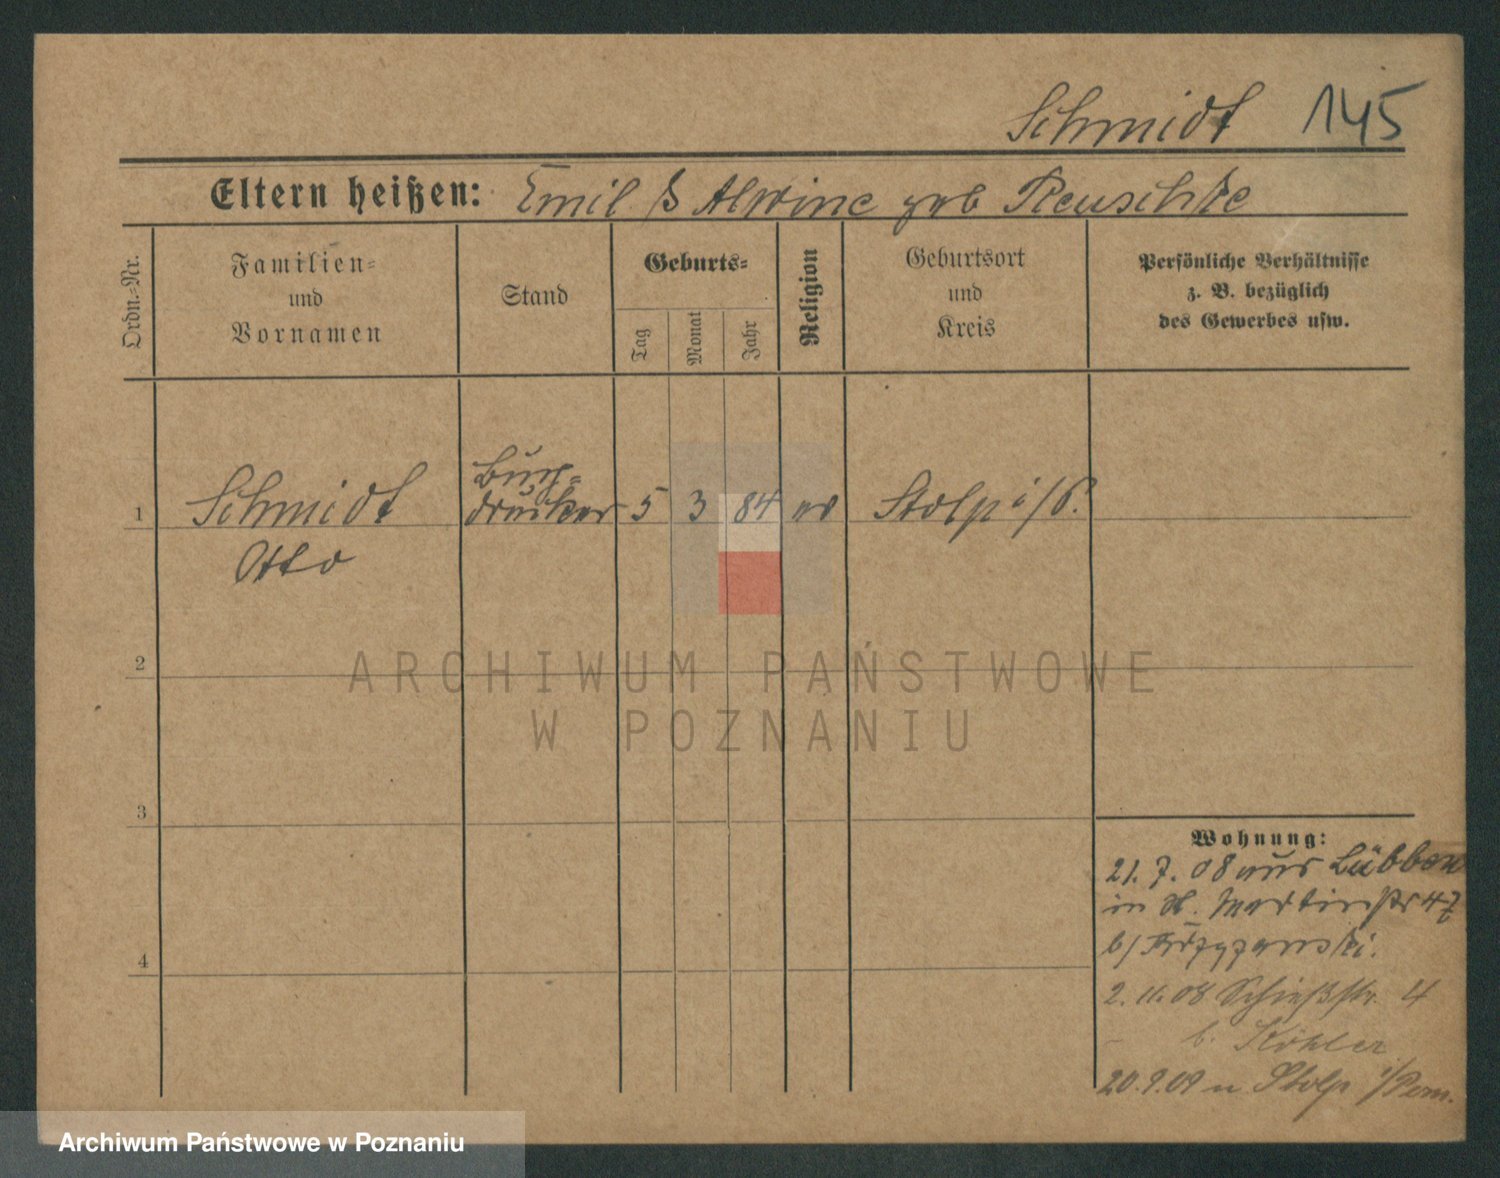 Schmidt 145
Eltern heißen: Emil & Alwine geb Reuschke
Ordn.=Nr.
Familien=
und
Vornamen
Stand
Geburts=
Tag
Monat
Jahr
Religion
Geburtsort
und
Kreis
Persönliche Verhältnisse
z. B. bezüglich
des Gewerbes usw.
1 Schmidt
Otto
Buch=
drucker
5 3 84 ev Stolp i/P.
2
3
4
ARCHIWUM PAŃSTWOWE
W POZNANIU
Wohnung:
21. 7. 08 aus Lübben
in St. Martinstr 47
b/ Krzyzanski.
2. 11. 08 Schießstr. 4
b. Köhler
20.9.09 n Stolp i/Pom.
Archiwum Państwowe w Poznaniu